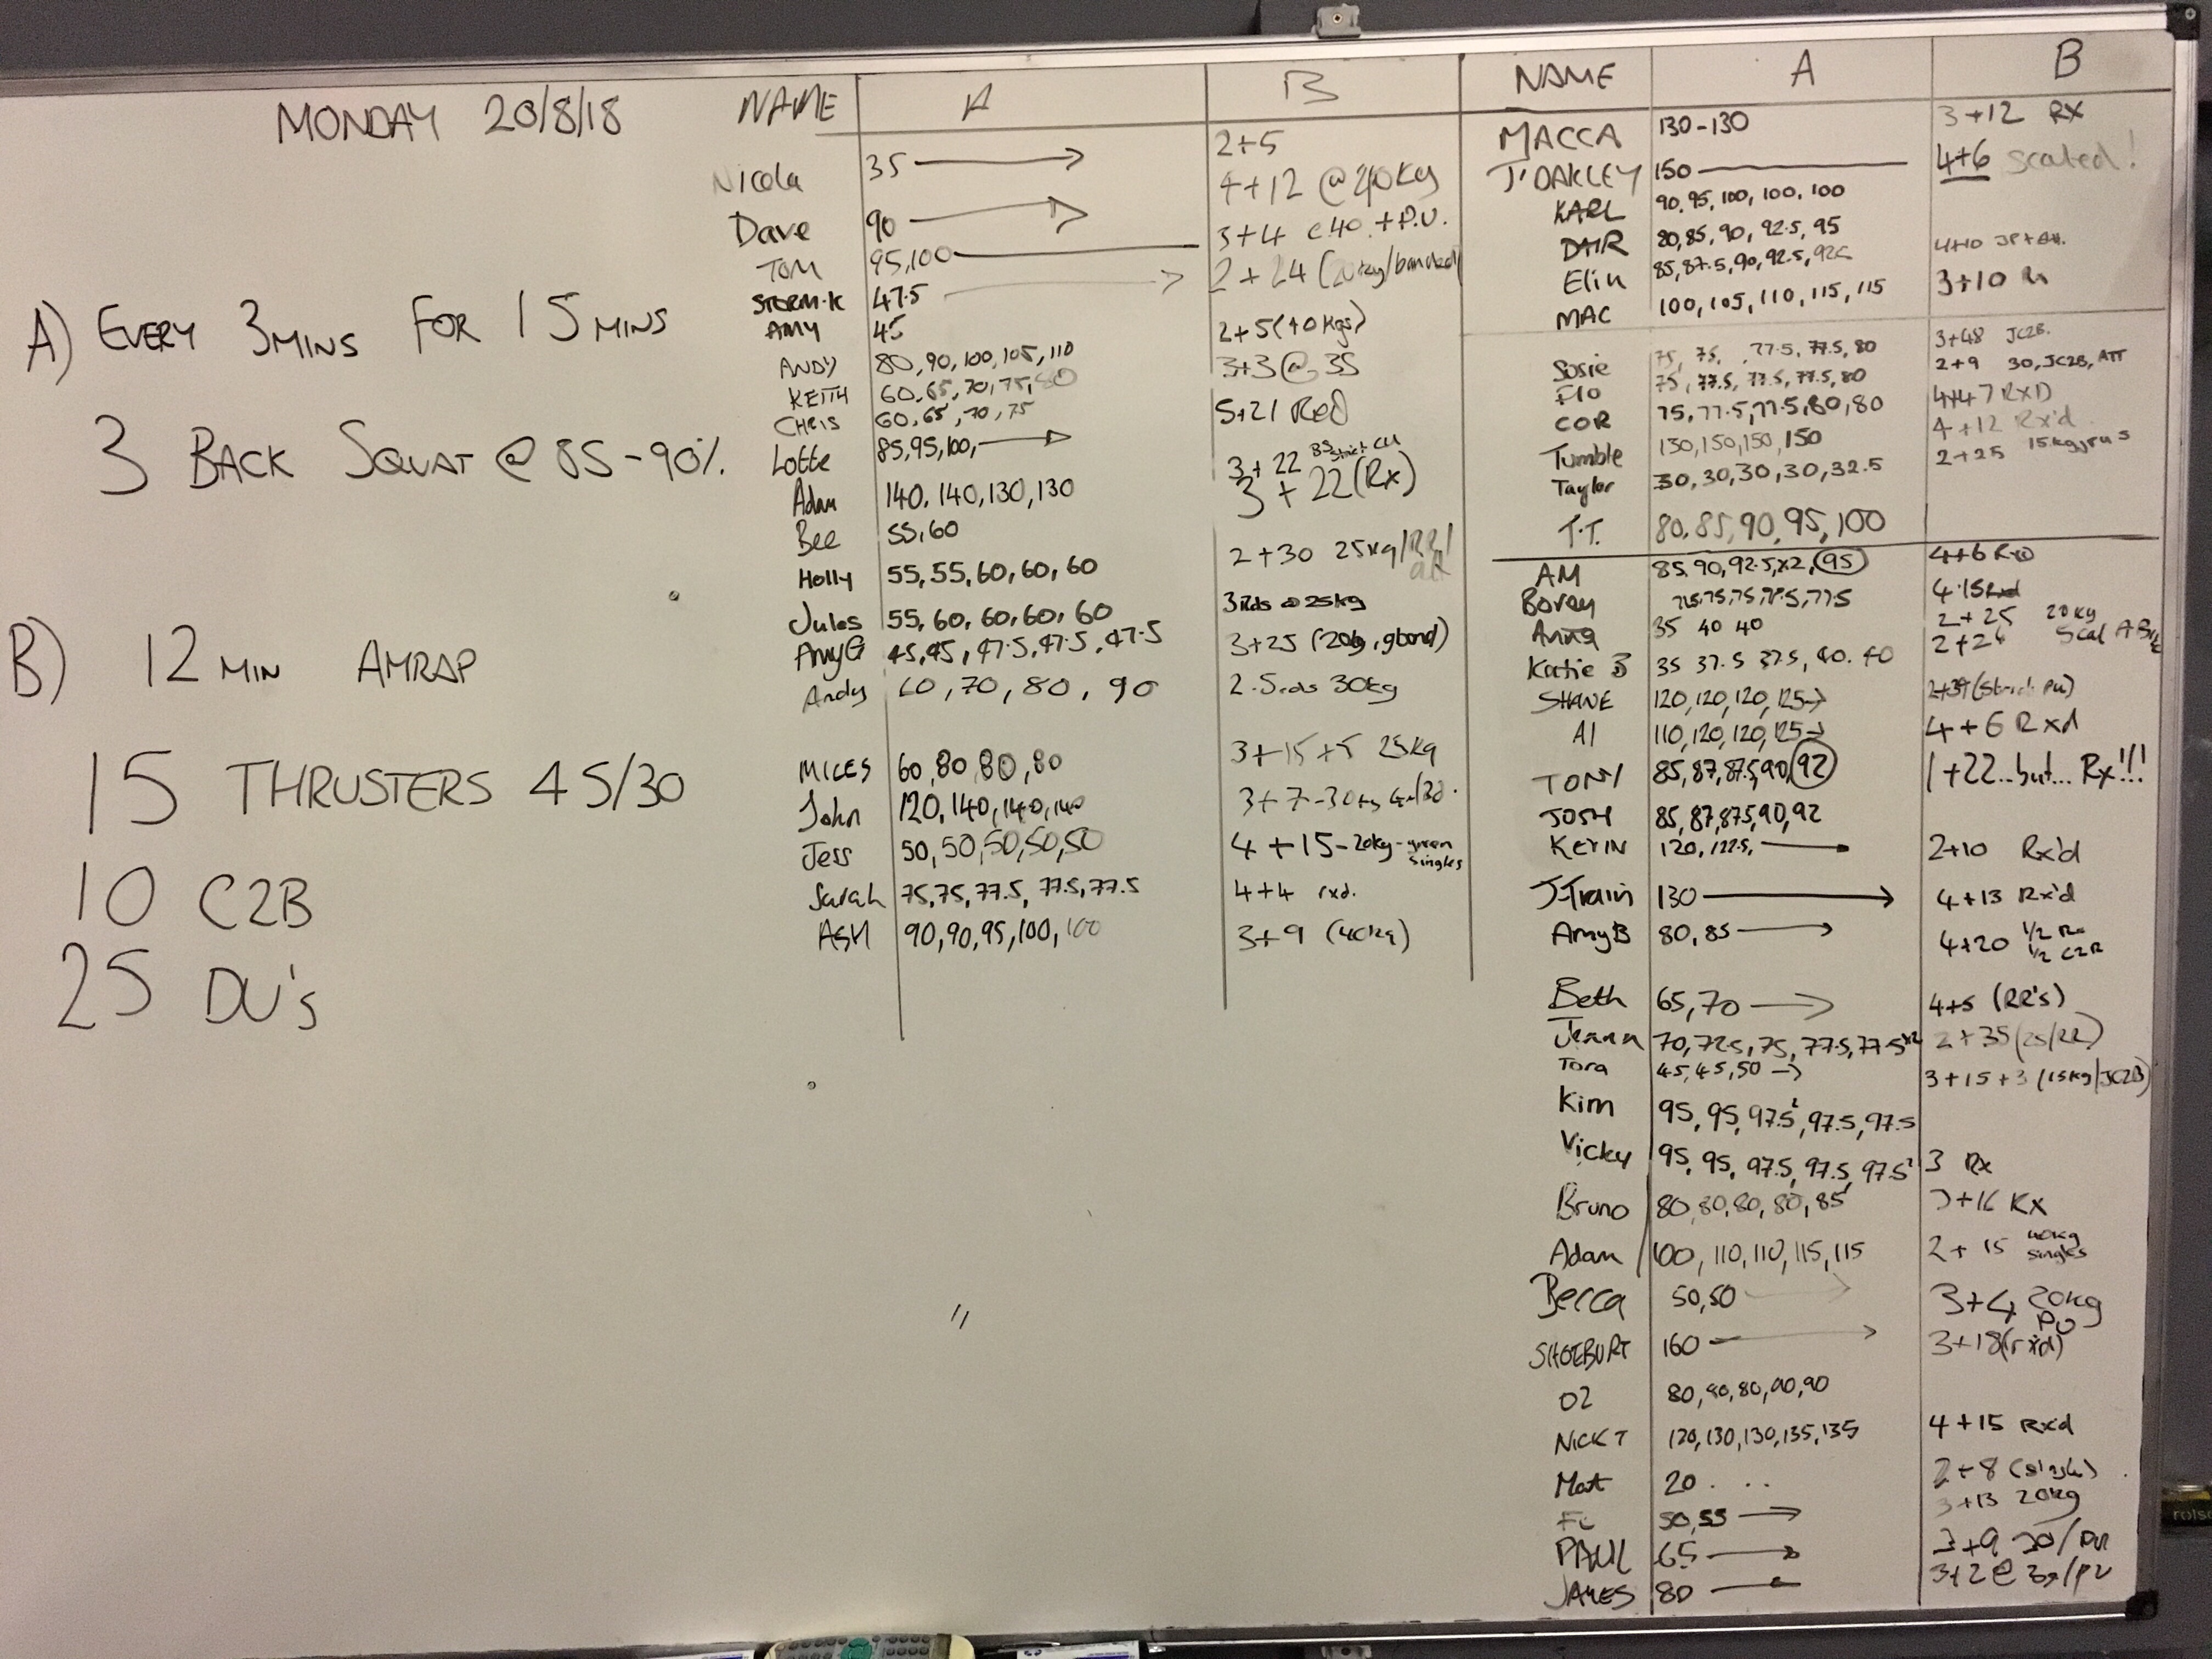 MONDAY 20/8/18
A) EVERY 3 MINS FOR 15 MINS
3 BACK SQUAT @ 85-90%
B) 12 MIN AMRAP
15 THRUSTERS 45/30
10 C2B
25 DU's
NAME A B
Nicola 35 → 2+5
Dave 90 → 4+12 @ 40kg
TOM 95,100 3+4 @40 + P.U.
STORM.K 47.5 → 2+24 (20kg/banded)
AMY 45 2+5 (40kgs)
ANDY 80, 90, 100, 105, 110 3+3 @ 35
KEITH 60, 65, 70, 75, 80
CHRIS 60, 65, 70, 75 5+21 Red
Lotte 85, 95, 100, → 3+22
Adam 140, 140, 130, 130 3+22 (Rx)
Bee 55, 60
Holly 55, 55, 60, 60, 60 2+30 25kg/RR/
Jules 55, 60, 60, 60, 60 3 Rds @ 25kg
AmyG 45, 45, 47.5, 47.5, 47.5 3+25 (20kg, gband)
Andy 60, 70, 80, 90 2.5 rds 30kg
MILES 60, 80, 80, 80 3+15+5 25kg
John 120, 140, 140, 140 3+7-30kg
Jess 50, 50, 50, 50, 50 4+15-20kg-green singles
Sarah 75, 75, 77.5, 77.5, 77.5 4+4 rxd.
ASH 90, 90, 95, 100, 100 3+9 (40kg)
NAME A B
MACCA 130-130 3+12 RX
J'OAKLEY 150 4+6 scaled!
KARL 90, 95, 100, 100, 100
80, 85, 90, 92.5, 95
Elin 85, 87.5, 90, 92.5, 4+10
MAC 100, 105, 110, 115, 115 3+10
Susie 75, 75, 77.5, 77.5, 80 3+48 JC2B.
Flo 75, 77.5, 77.5, 77.5, 80 2+9 30, JC2B, ATT
COR 75, 77.5, 77.5, 80, 80 4+47 RXD
Tumble 130, 150, 150, 150 4+12 Rx'd
Taylor 30, 30, 30, 30, 32.5 2+25 15kg
T.T. 80, 85, 90, 95, 100
AM 85, 90, 92.5, x2, 95 4+6 Rxd
75, 75, 77.5, 77.5 4.15 Rxd
Anna 35 40 40 2+25 20kg
Katie B 35 37.5 37.5, 40. 40 5cal
SHANE 120, 120, 120, 125→
Al 110, 120, 120, 125→ 4+6 Rxd
TONY 85, 87, 87.5, 90, 92 1+22...but... Rx!!!
JOSH 85, 87, 87.5, 90, 92
KEVIN 120, 122.5, → 2+10 Rx'd
J-Train 130 → 4+13 Rx'd
AmyB 80, 85 → 4+20 1/2 Rx 1/2 C2B
Beth 65, 70 → 4+5 (RR's)
Jenna 70, 72.5, 75, 77.5, 77.5 x2 2+35 (25/RR)
Tora 45, 45, 50 → 3+15+3 (15kg/JC2B)
Kim 95, 95, 97.5, 97.5, 97.5
Vicky 95, 95, 97.5, 97.5, 97.5 3 Rx
Bruno 80, 80, 80, 80, 85 3+16 Rx
Adam 100, 110, 110, 115, 115 2+15 40kg singles
Becca 50, 50 → 3+4 20kg PU
SHOEBURT 160 → 3+18 (rxd)
OZ 80, 90, 80, 90, 90
NICK T 120, 130, 130, 135, 135 4+15 Rxd
Mat 20 . .. 2+8
Fi 50, 55 → 3+13 20kg
PAUL 65 → 3+9 30/PU
JAMES 80 3+2 @ /PU